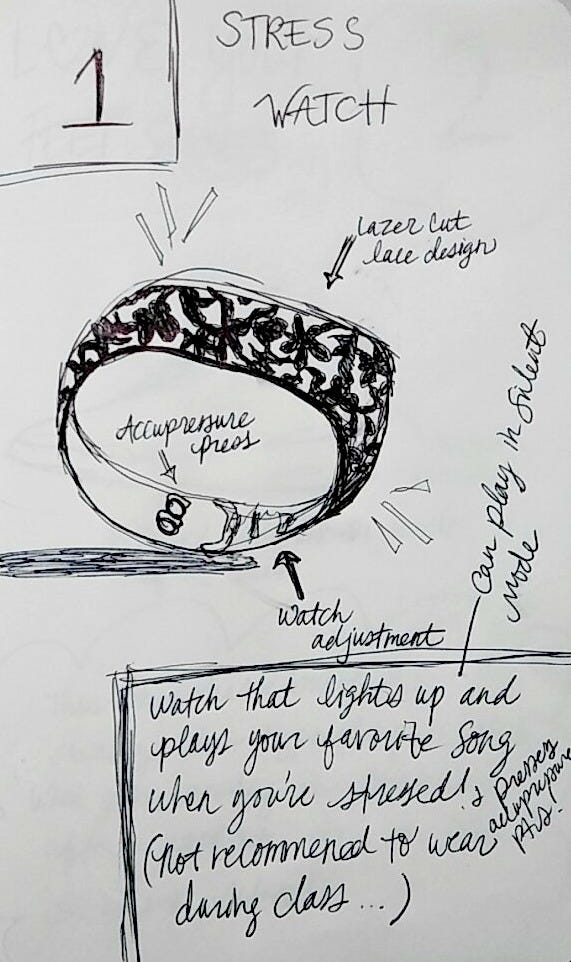 1
STRESS
WATCH
Lazer cut
lace design
Accupressure
press
Watch
adjustment
Can play in silent
mode
Watch that lights up and
plays your favorite song
when you're stressed! &
presses
accupressure
pts!
(not recommened to wear
during class...)